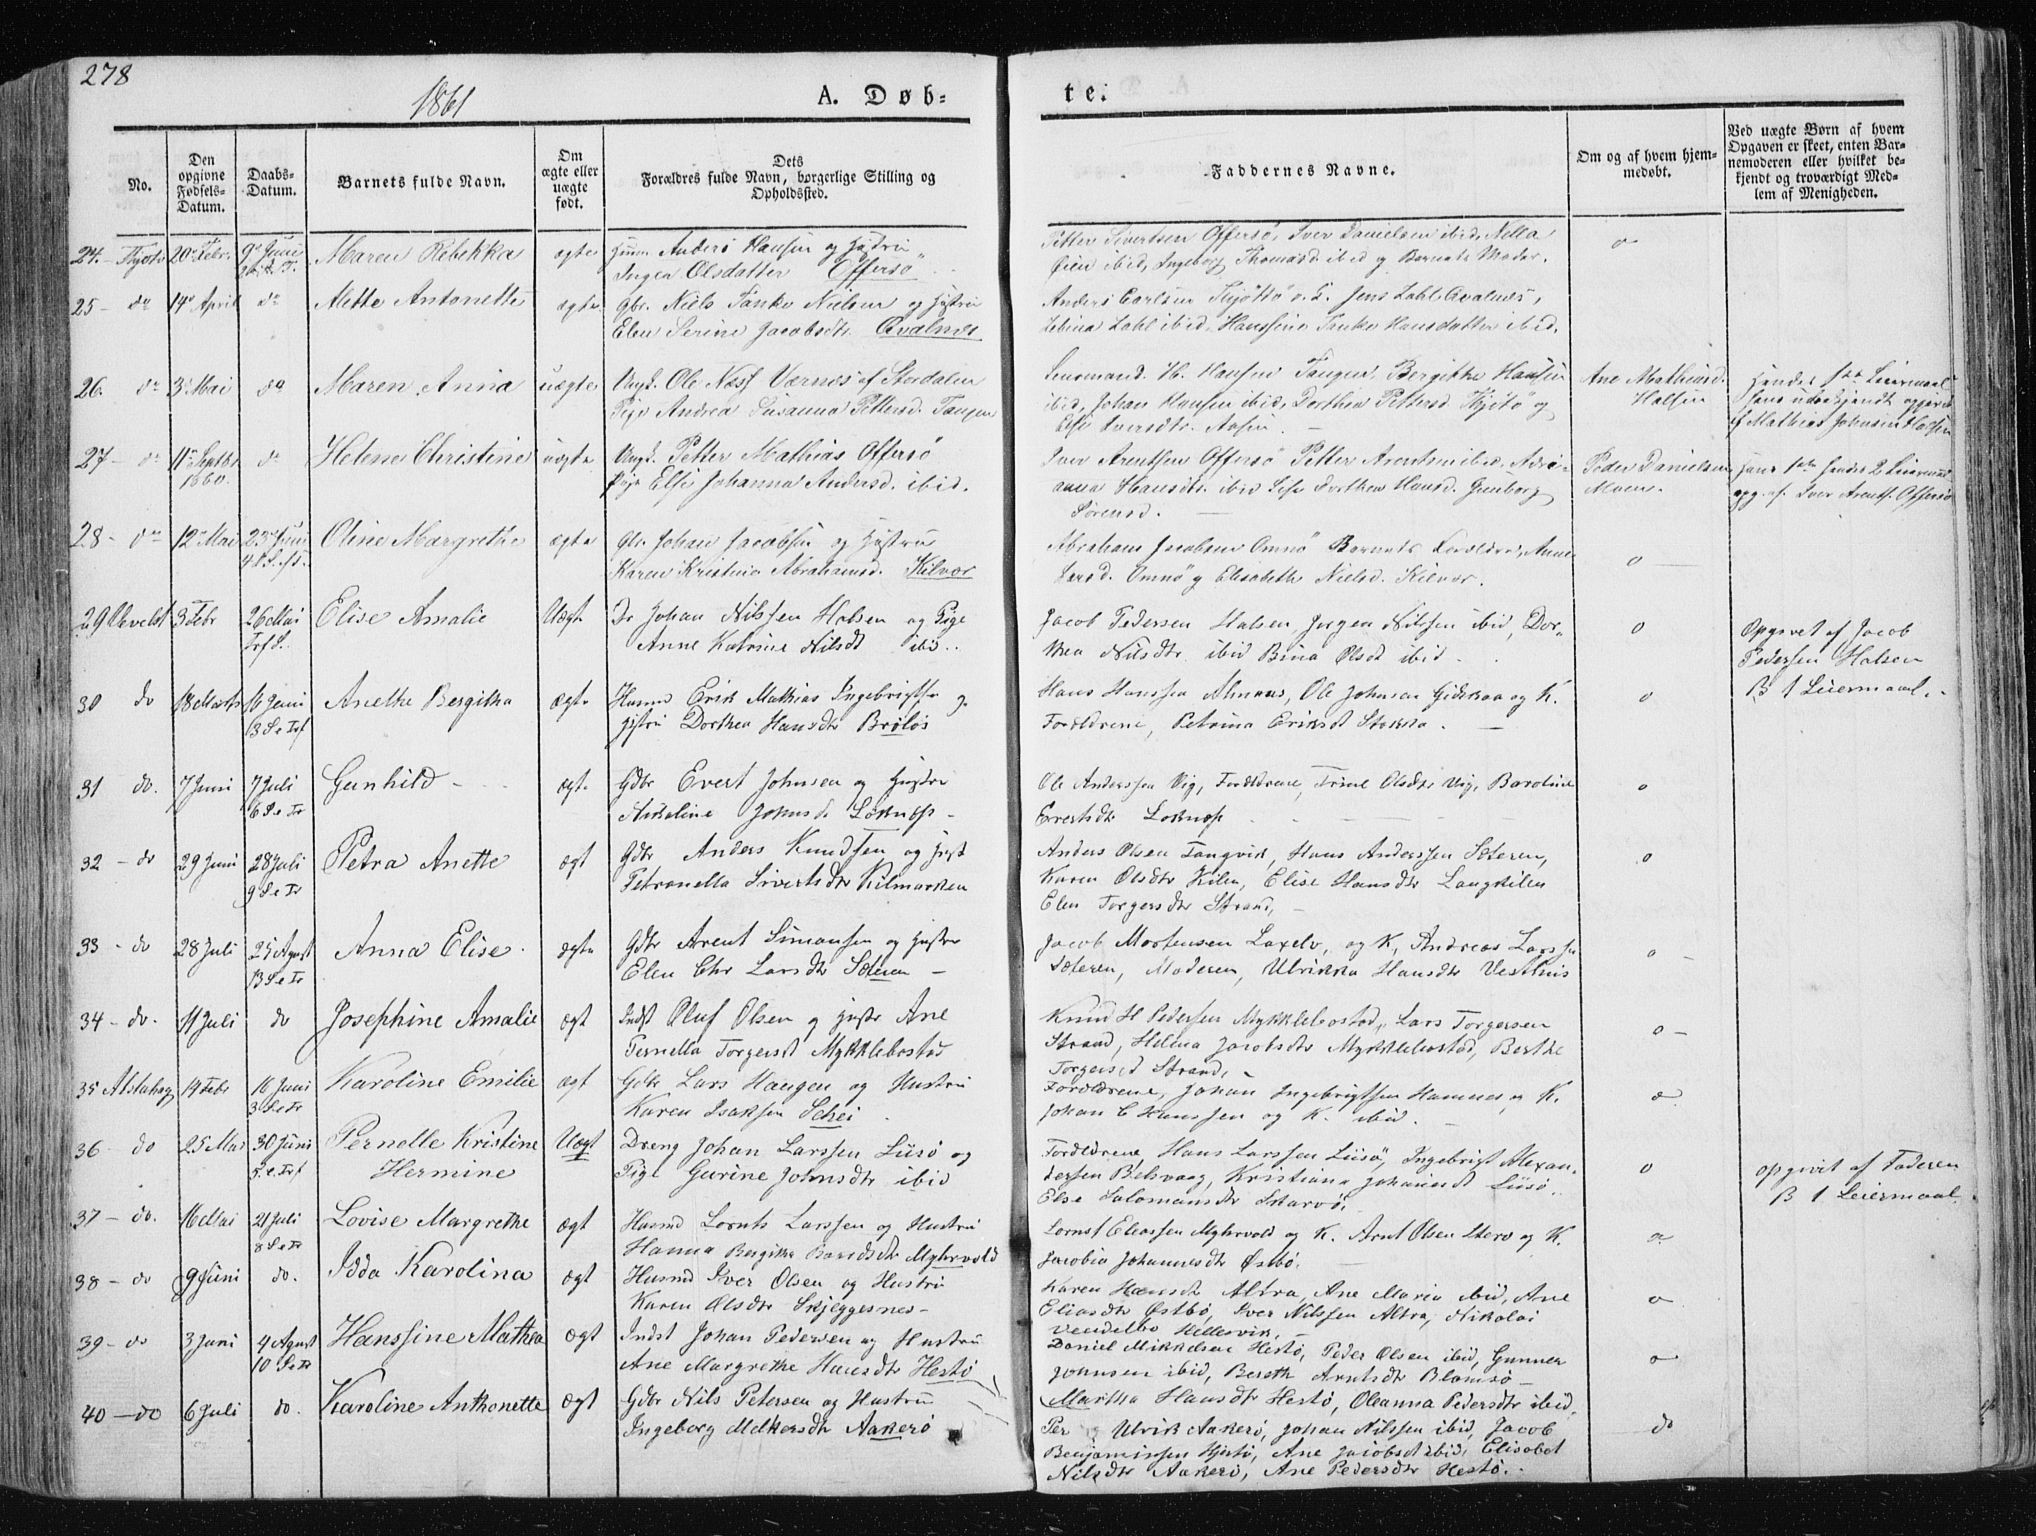 278
1861
A. Døb-
te.
No.
Den opgivne Fødsels-Datum.
Daabs-Datum.
Barnets fulde Navn.
Om ægte eller uægte født.
Dets Forældres fulde Navn, borgerlige Stilling og Opholdssted.
Faddernes Navne.
Om og af hvem hjemmedøbt.
Ved uægte Børn af hvem Opgaven er skeet, enten Barnemoderen eller hvilket bekjendt og troværdigt Medlem af Menigheden.
24. 20 Febr. 9 Juni Maren Rebekka ægte Huusm Anders Hansen og Hustru
Inger Olsdatter Offersø
Petter Sivertsen Offersø, Iver Danielsen ibid, Nella
Øien ibid, Ingeborg Thomasd ibid og Barnets Moder.
o
25 do 14 April do Mette Antonette ægte Gbr. Niels Tanke Nielsen og Hustru
Elen Serine Jacobsdtr. Qvalnes
Anders Carlsen Jens Zahl Qvalnes,
Zahl ibid, Hanssine Tanke Hansdatter ibid.
26. do 3 Mai do Maren Anna uægte Ungk. Ole Næss Værnes af Stordalen
Pige Andrea Susanna Pettersd. Tangen
Lensmand H. Hansen Tangen, Bergitha Hansen
ibid, Johan Hansen ibid, Dorthea Pettersd og
Else Iversdtr. Aasen
Ane Mathiasd. Halsen
af Mathias Johnsen Halsen
27 do 11 Septbr 1860. do Helene Christine uægte Ungk. Petter Mathias Offersø
Pige Else Johanna Andersd. ibid.
Iver Arentsen Offersø Petter Arentsen ibid, Adri-
anna Hansdtr. ibid Dorthea Hansd.
Sørensd.
Peder Danielsen Moen.
opg. af Iver Arents. Offersø
28 do 12 Mai 23 Juni Oline Margrethe ægte Gbr. Johan Jacobsen og Hustru
Karen Kristina Abrahamsd. Kilvær
Abraham Jacobsen Omnø Barnets Forældre, Anne
Larsd. Omnø og Elisabeth Nielsd. Kilvær.
o
29 Vevelst 3 Febr 26 Mai Elise Amalie Uægt Dr Johan Nilssen Halsen og Pige
Trf S. Anne Katrine Nilsdt ibd..
Jacob Pedersen Halsen Jørgen Nilssen ibid, Dor-
thea Nilsdtr ibid Bina Olsdt ibid
o
Opgivet af Jacob
Pedersen Halsen
B 1 Leiermaal.
30 do 18 Marts 16 Juni Anethe Bergitha ægte Husmd Erik Mathias Ingebrigtss og
3 S e Trf Hustru Dorthea Hansdtr Brøløs
Hans Hanssen Alvnæs, Ole Johnsen og K.
Forældrene, Petrina Eriksdt Stokka
o
31 do. 7 Juni 7 Juli Gunhild ægte Gdbr Evert Johnsen og Hustru
6 S e Tr Johnsd
Ole Anderssen Vig, Forældrene, Trine Olsdtr Vig, Baroline
Evertsdtr
o
32 do 29 Juni 28 Juli Petra Anette ægt Gdbr Anders Knudssen og Hust
9 S e Tr Petronella Sivertsdtr Kilmarken
Anders Olsen Tangvik, Hans Anderssen Sæteren,
Karen Olsdtr Kilen, Elise Hansdtr Langkilen
Elen Torgersdtr Strand,
o
33 do 28 Juli 25 August Anna Elise ægte Gdbr Arent Simonsen og Hustru
13 S e Tr Elen Chr Larsdtr Sæteren
Jacob Mortensen Laxelv, og K, Andreas Larssen
Sæteren, Moderen, Ulrikka Hansdtr Vesthus
o
34 do. 11 Juli do Josephine Amalie ægt Indst Oluf Olsen og Hustr Ane
Pernella Torgersdt Mykklebostad
Knud H Pedersen Mykklebostad, Lars Torgersen
Strand, Helena Jacobsdtr Mykklebostad, Berthe
Torgersd Strand,
o
35 Alstahoug 19 Febr 16 Juni Karoline Emilie ægt Gdbr Lars Haugen og Hustru
3 S e Tr Karen Isaksen Schei
Forældrene, Johan Ingebrigtsen Hamnes og K.
Johan C Hanssen og K. ibid.
o
36 do 25 Mai 30 Juni Pernelle Kristine Uægt Dreng Johan Larssen Liisø og
5 S. e Trf Hermine Pige Gurine Johnsdtr ibid
Forældrene, Hans Larssen Liisø, Ingebrigt Alexan-
dersen Belsvaag, Kristiane Johannesdt Liisø.
Else Salomonsdtr Skarvø.
o
opgivet af Faderen
B 1 Leiermaal
37 do. 16 Mai 21 Juli Lovise Margrethe ægt Husmd Lornts Larssen og Hustru
8 S e Tr Hanna Bergitha Myhrvold
Lornst Eliassen Myhrvold og K. Arnt Olsen og K.
Jacobia Johannesdtr Østbø.
o
38 do 9 Juni do. Idda Karolina ægt Husmd Iver Olsen og Hustru
Karen Olsdtr Skjeggesnes
Karen Hansdt Altra, Ane Maria ibid, Ane
Eliasdtr Østbø, Iver Nilssen Altra, Nikolai
Hellesvik,
o
39 do 3 Juni 4 August Hanssine Mathea ægt Indst Johan Pedersen og Hustru
10 S e Tr Ane Margrethe Hansdtr Hestø
Daniel Mikkelsen Hestø, Peder Olsen ibid, Gunner
Johnsen ibid, Bereth Arntsdtr Blomsø
o
40 do 6 Juli do. Karoline Anthonette ægt Gdbr Nils Petersen og Hustru
Ingeborg Melkersdtr Aakerø
Martha Hansdtr Hestø, Oleanna Pedersdtr ibid,
Per Ulrik Aakerø, Johan Nilssen ibid, Jacob
Benjaminssen Hestø, Ane Jacobsdt ibid, Elisabet
Nilsdtr Aakerø, Ane Pedersdtr Hestø.
do